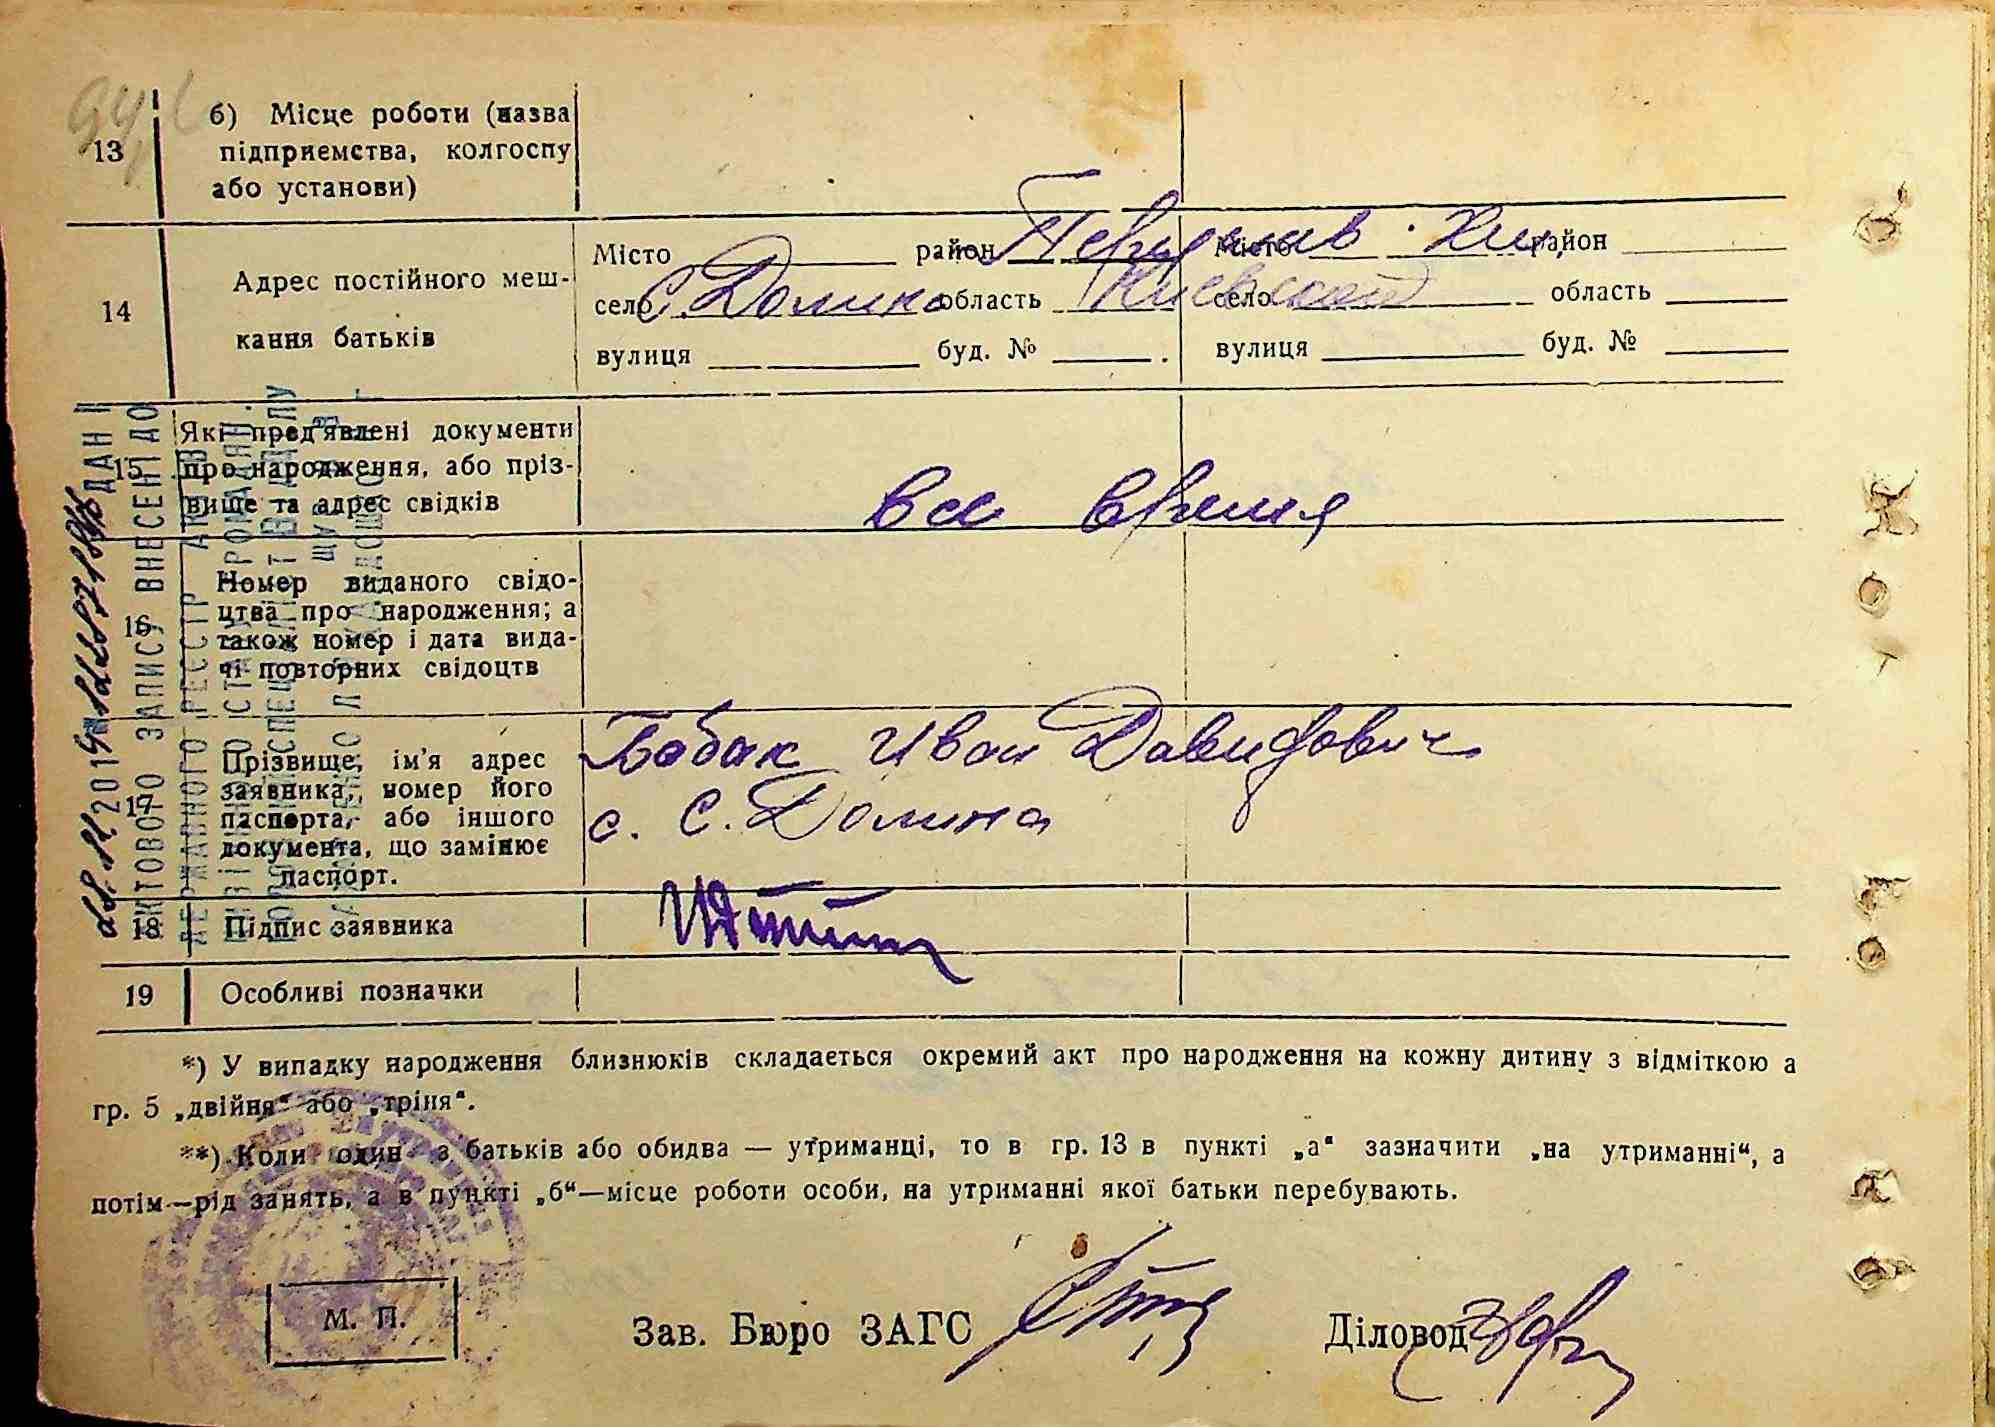 13
б) Місце роботи (назва
підприємства, колгоспу
або установи)
14
Адрес постійного меш-
кання батьків
Місто район
село С. Долина область Киевской
вулиця буд. №
Місто район
село область
вулиця буд. №
15
Які пред'явлені документи
про народження, або пріз-
вище та адрес свідків
все время
16
Номер виданого свідо-
цтва про народження; а
також номер і дата вида-
чі повторних свідоцтв
17
Прізвище, ім'я адрес
заявника, номер його
паспорта, або іншого
документа, що замінює
паспорт.
Бабак Иван Давидович
с. С. Долина
18
Підпис заявника
19
Особливі позначки
*) У випадку народження близнюків складається окремий акт про народження на кожну дитину з відміткою а
гр. 5 „двійня“ або „тріня“.
**) Коли один з батьків або обидва — утриманці, то в гр. 13 в пункті „а“ зазначити „на утриманні“, а
потім—рід занять, а в пункті „б“—місце роботи особи, на утриманні якої батьки перебувають.
М. П.
Зав. Бюро ЗАГС
Діловод
ДАНІ
АКТОВОГО ЗАПИСУ ВНЕСЕНІ ДО